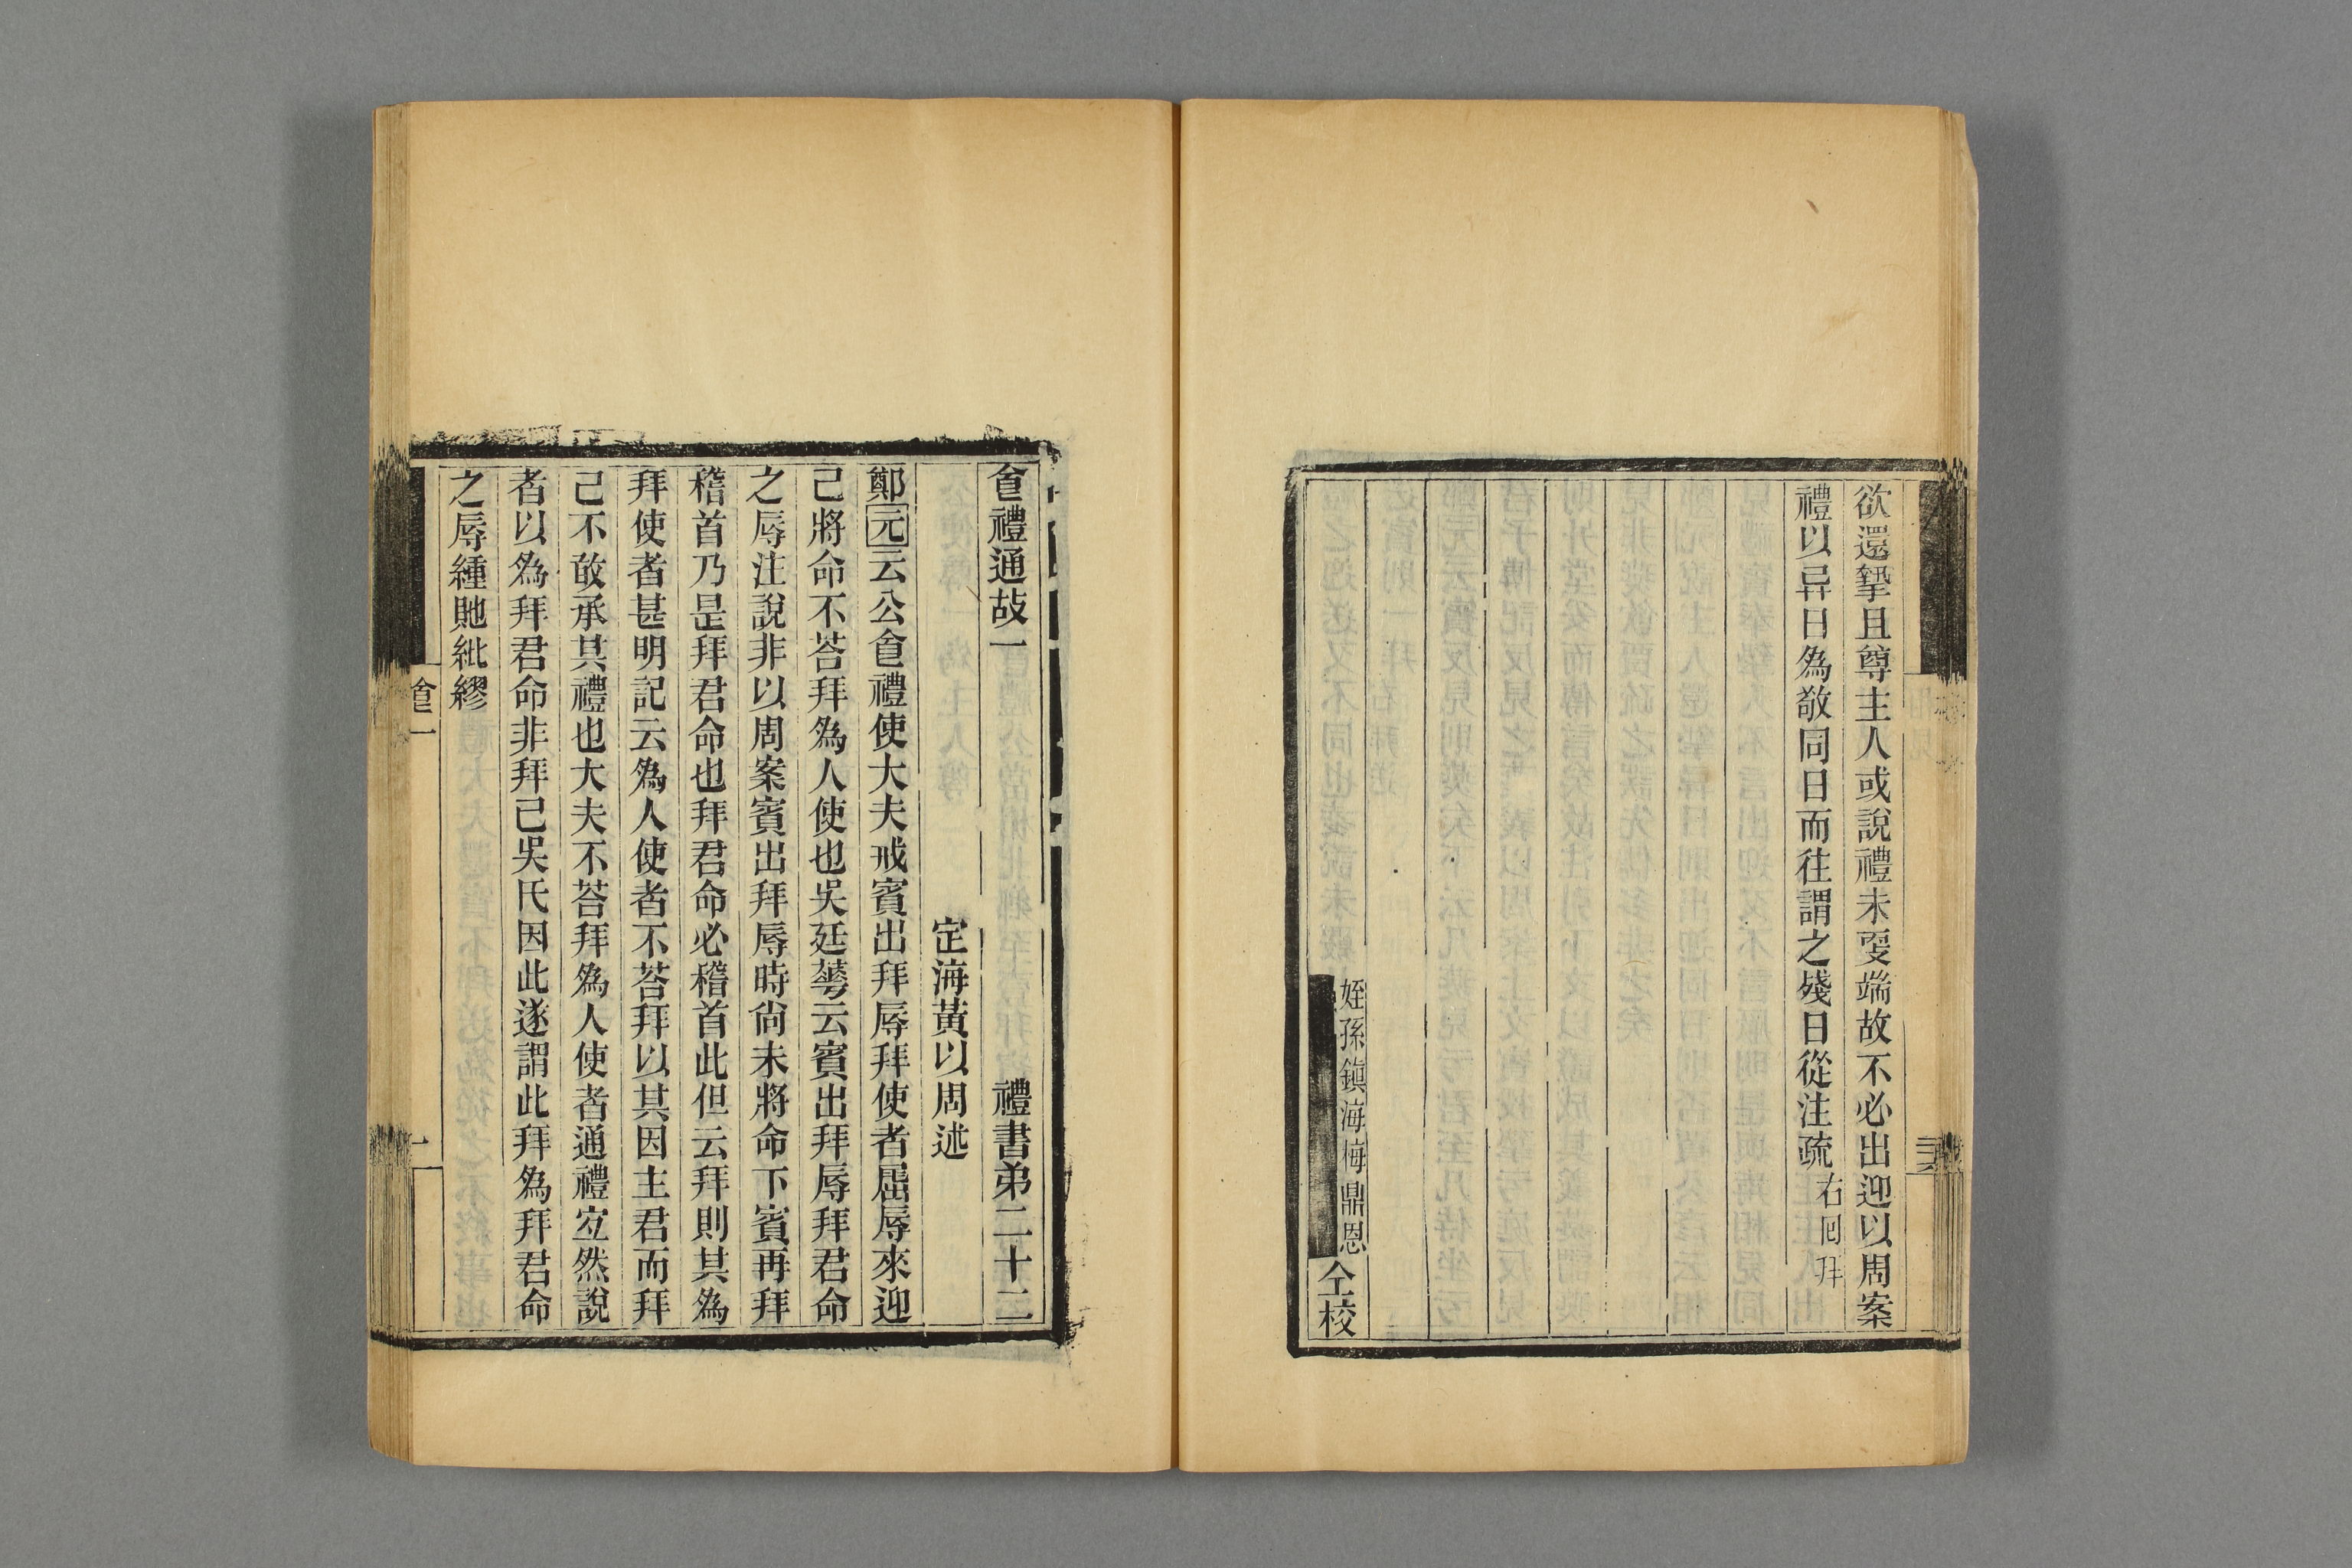 欲還摯且尊主人或說禮未耎端故不必出迎以周案
禮以异日爲敬同日而往謂之㥇日從注疏右同拜
姪孫鎮海梅鼎恩
仝校
食禮通故一 禮書弟二十二
定海黃以周述
鄭元云公食禮使大夫戒賓出拜辱拜使者屈辱來迎
己將命不荅拜爲人使也吳廷華云賓出拜辱拜君命
之辱注說非以周案賓出拜辱時尙未將命下賓再拜
稽首乃是拜君命也拜君命必稽首此但云拜則其爲
拜使者甚明記云爲人使者不荅拜以其因主君而拜
己不敢承其禮也大夫不荅拜爲人使者通禮宐然說
者以爲拜君命非拜己吳氏因此遂謂此拜爲拜君命
之辱緟貤紕繆
食一
一